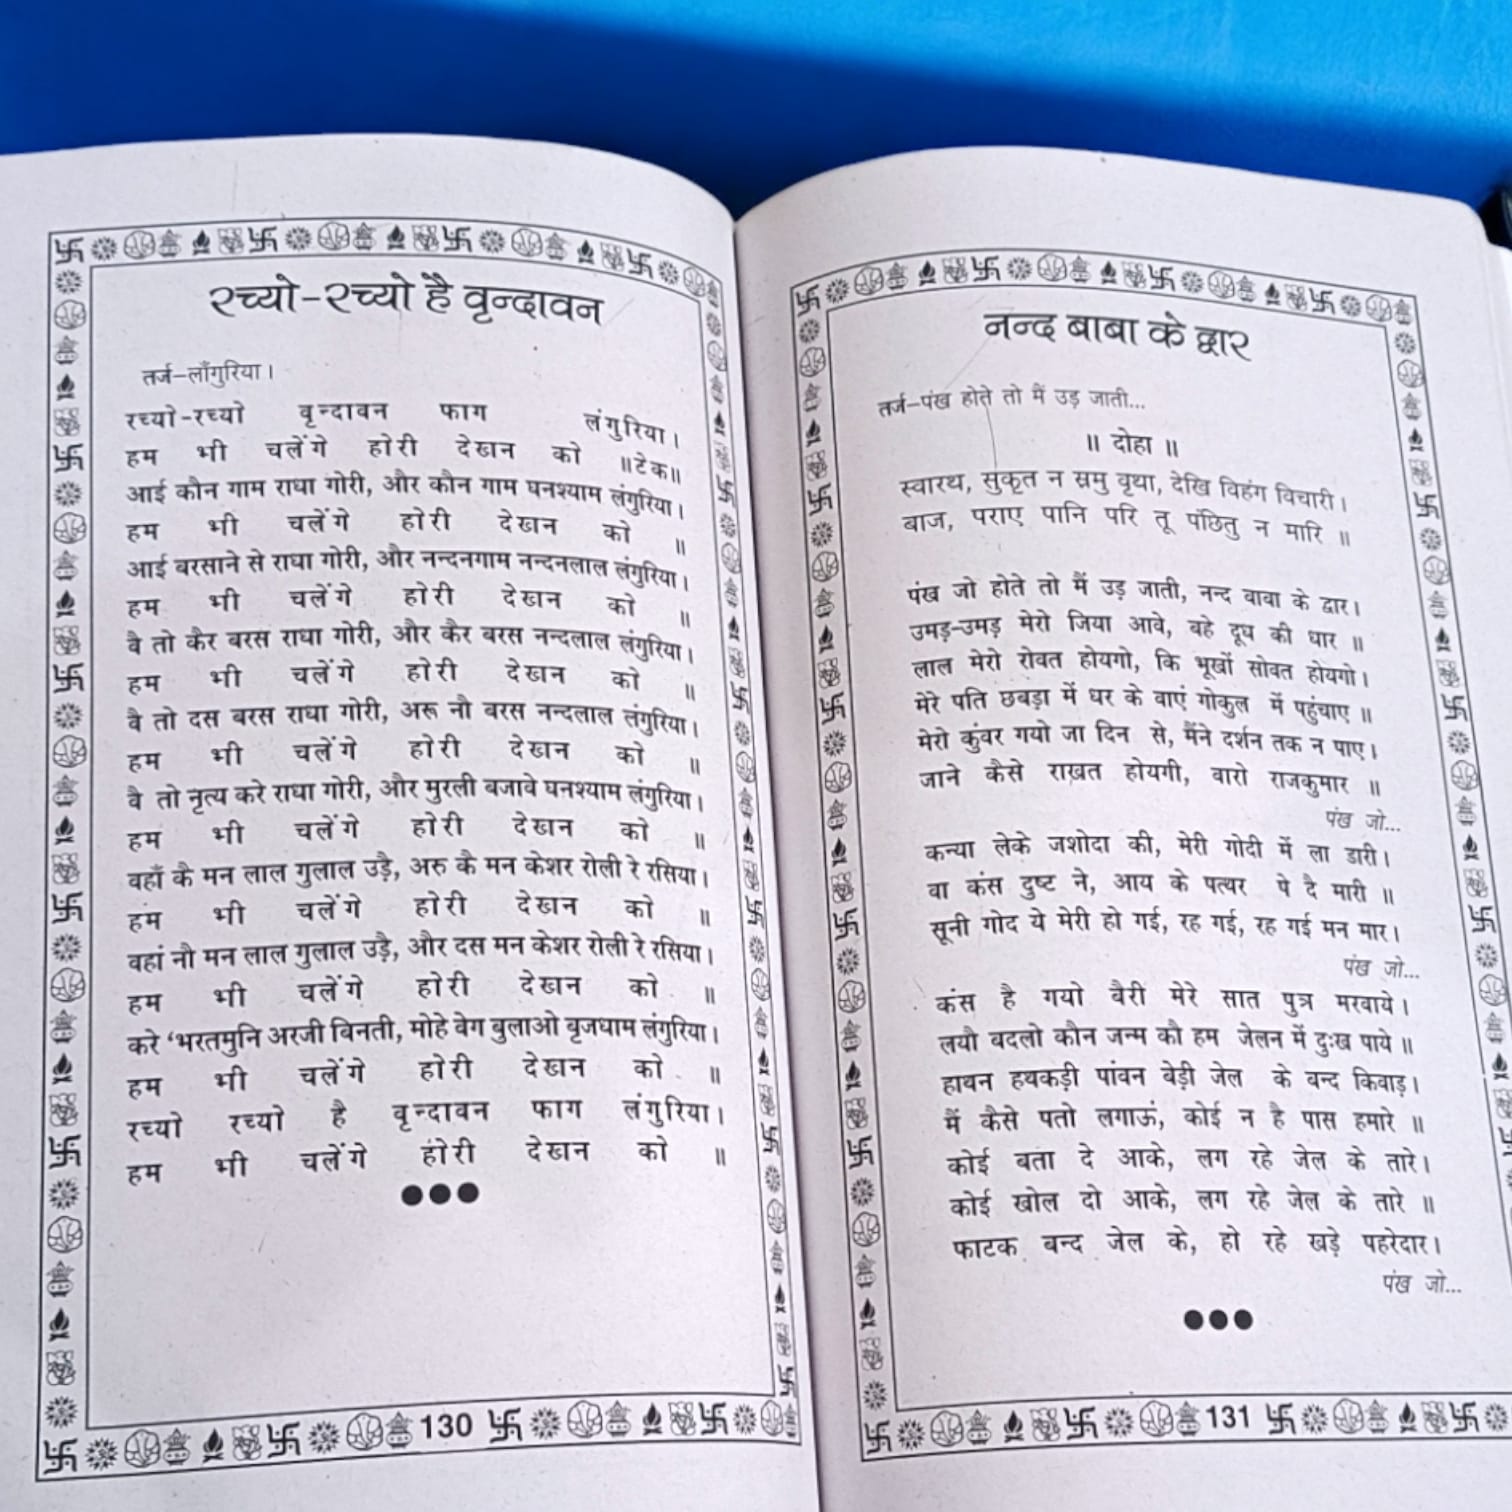 रच्यो-रच्यो है वृन्दावन
तर्ज-लाँगुरिया।
रच्यो-रच्यो वृन्दावन फाग लंगुरिया।
हम भी चलेंगे होरी देखन को ॥टेक॥
आई कौन गाम राधा गोरी, और कौन गाम घनश्याम लंगुरिया।
हम भी चलेंगे होरी देखन को ॥
आई बरसाने से राधा गोरी, और नन्दनगाम नन्दनलाल लंगुरिया।
हम भी चलेंगे होरी देखन को ॥
वै तो कैर बरस राधा गोरी, और कैर बरस नन्दलाल लंगुरिया।
हम भी चलेंगे होरी देखन को ॥
वै तो दस बरस राधा गोरी, अरू नौ बरस नन्दलाल लंगुरिया।
हम भी चलेंगे होरी देखन को ॥
वै तो नृत्य करे राधा गोरी, और मुरली बजावे घनश्याम लंगुरिया।
हम भी चलेंगे होरी देखन को ॥
वहाँ कै मन लाल गुलाल उड़ै, अरु कै मन केशर रोली रे रसिया।
हम भी चलेंगे होरी देखन को ॥
वहां नौ मन लाल गुलाल उड़ै, और दस मन केशर रोली रे रसिया।
हम भी चलेंगे होरी देखन को ॥
करे ‘भरतमुनि अरजी विनती, मोहे वेग बुलाओ बृजधाम लंगुरिया।
हम भी चलेंगे होरी देखन को ॥
रच्यो रच्यो है वृन्दावन फाग लंगुरिया।
हम भी चलेंगे होरी देखन को ॥
130
नन्द बाबा के द्वार
तर्ज-पंख होते तो मैं उड़ जाती...
॥ दोहा ॥
स्वारथ, सुकृत न स्रमु वृथा, देखि विहंग विचारी।
बाज, पराए पानि परि तू पंछितु न मारि ॥
पंख जो होते तो मैं उड़ जाती, नन्द बाबा के द्वार।
उमड़-उमड़ मेरो जिया आवे, बहे दूध की धार ॥
लाल मेरो रोवत होयगो, कि भूखों सोवत होयगो।
मेरे पति छबड़ा में धर के वाएं गोकुल में पहुंचाए ॥
मेरो कुंवर गयो जा दिन से, मैंने दर्शन तक न पाए।
जाने कैसे राखत होयगी, वारो राजकुमार ॥
पंख जो...
कन्या लेके जशोदा की, मेरी गोदी में ला डारी।
वा कंस दुष्ट ने, आय के पत्थर पे दै मारी ॥
सूनी गोद ये मेरी हो गई, रह गई, रह गई मन मार।
पंख जो...
कंस है गयो वैरी मेरे सात पुत्र मरवाये।
लयौ बदलो कौन जन्म कौ हम जेलन में दुःख पाये ॥
हाथन हथकड़ी पांवन बेड़ी जेल के बन्द किवाड़।
मैं कैसे पतो लगाऊं, कोई न है पास हमारे ॥
कोई बता दे आके, लग रहे जेल के तारे।
कोई खोल दो आके, लग रहे जेल के तारे ॥
फाटक बन्द जेल के, हो रहे खड़े पहरेदार।
पंख जो...
131